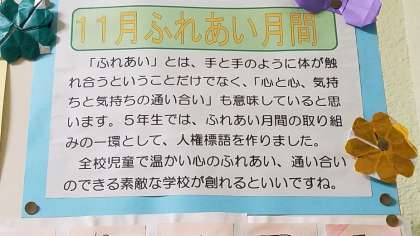 11月ふれあい月間
「ふれあい」とは、手と手のように体が触
れ合うということだけでなく、「心と心、気持
ちと気持ちの通い合い」も意味していると思
います。5年生では、ふれあい月間の取り組
みの一環として、人権標語を作りました。
全校児童で温かい心のふれあい、通い合い
のできる素敵な学校が創れるといいですね。